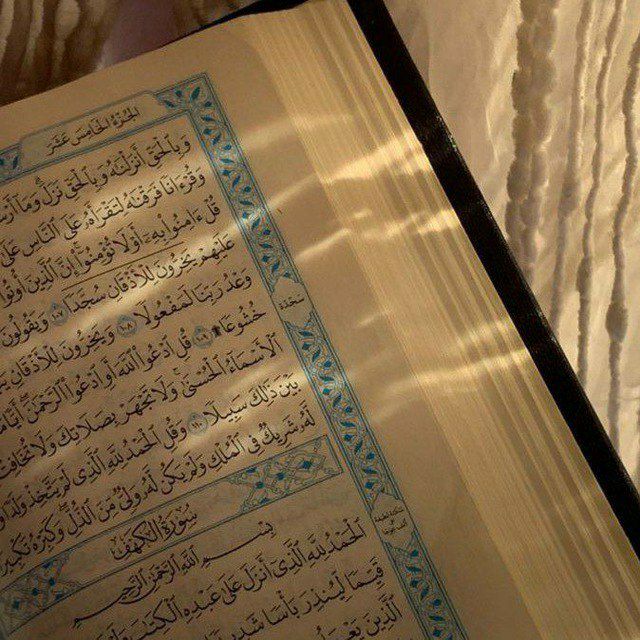 الجزء الخامس عشر
وَبِٱلۡحَقِّ أَنزَلۡنَٰهُ وَبِٱلۡحَقِّ نَزَلَۗ وَمَآ
وَقُرۡءَانٗا فَرَقۡنَٰهُ لِتَقۡرَأَهُۥ عَلَى ٱلنَّاسِ عَلَىٰ
قُلۡ ءَامِنُواْ بِهِۦٓ أَوۡ لَا تُؤۡمِنُوٓاْۚ إِنَّ ٱلَّذِينَ أُوتُواْ
عَلَيۡهِمۡ يَخِرُّونَۤ لِلۡأَذۡقَانِۤ سُجَّدٗاۤ ١٠٧ وَيَقُولُونَ
وَعۡدُ رَبِّنَا لَمَفۡعُولٗا ١٠٨ وَيَخِرُّونَ لِلۡأَذۡقَانِ
سجدة
خُشُوعٗا۩ ١٠٩ قُلِ ٱدۡعُواْ ٱللَّهَ أَوِ ٱدۡعُواْ ٱلرَّحۡمَٰنَۖ أَيّٗا مَّا
ٱلۡأَسۡمَآءُ ٱلۡحُسۡنَىٰۚ وَلَا تَجۡهَرۡ بِصَلَاتِكَ وَلَا تُخَافِتۡ
بَيۡنَ ذَٰلِكَ سَبِيلٗا ١١٠ وَقُلِ ٱلۡحَمۡدُ لِلَّهِ ٱلَّذِي لَمۡ يَتَّخِذۡ وَلَدٗا
لَّهُۥ شَرِيكٞ فِي ٱلۡمُلۡكِ وَلَمۡ يَكُن لَّهُۥ وَلِيّٞ مِّنَ ٱلذُّلِّۖ وَكَبِّرۡهُ تَكۡبِيرَۢا
سُورَةُ الكَهۡفِ
بِسۡمِ ٱللَّهِ ٱلرَّحۡمَٰنِ ٱلرَّحِيمِ
ٱلۡحَمۡدُ لِلَّهِ ٱلَّذِيٓ أَنزَلَ عَلَىٰ عَبۡدِهِ ٱلۡكِتَٰبَ وَلَمۡ
قَيِّمٗا لِّيُنذِرَ بَأۡسٗا شَدِيدٗا
ٱلَّذِينَ